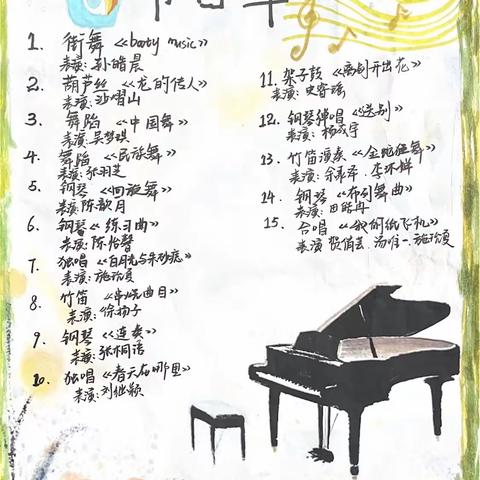 节目单
1. 街舞 《booty music》
表演: 孙皓晨
2. 葫芦丝 《龙的传人》
表演: 沙熠山
3. 舞蹈 《中国舞》
表演: 吴梦琪
4. 舞蹈 《民族舞》
表演: 张羽芝
5. 钢琴 《回旋舞》
表演: 陈歆月
6. 钢琴 《练习曲》
表演: 陈怡馨
7. 独唱 《白月光与朱砂痣》
表演: 施
8. 竹笛 《串烧曲目》
表演: 徐扬子
9. 钢琴 《连奏》
表演: 张桐语
10. 独唱 《春天在哪里》
表演: 刘继颖
11. 架子鼓 《离别开出花》
表演: 史容瑶
12. 钢琴弹唱 《送别》
表演: 杨成宇
13. 竹笛演奏 《金蛇狂舞》
表演: 李怀祥
14. 钢琴 《布列舞曲》
表演: 田皓冉
15. 合唱 《我的纸飞机》
表演 汤唯一、施